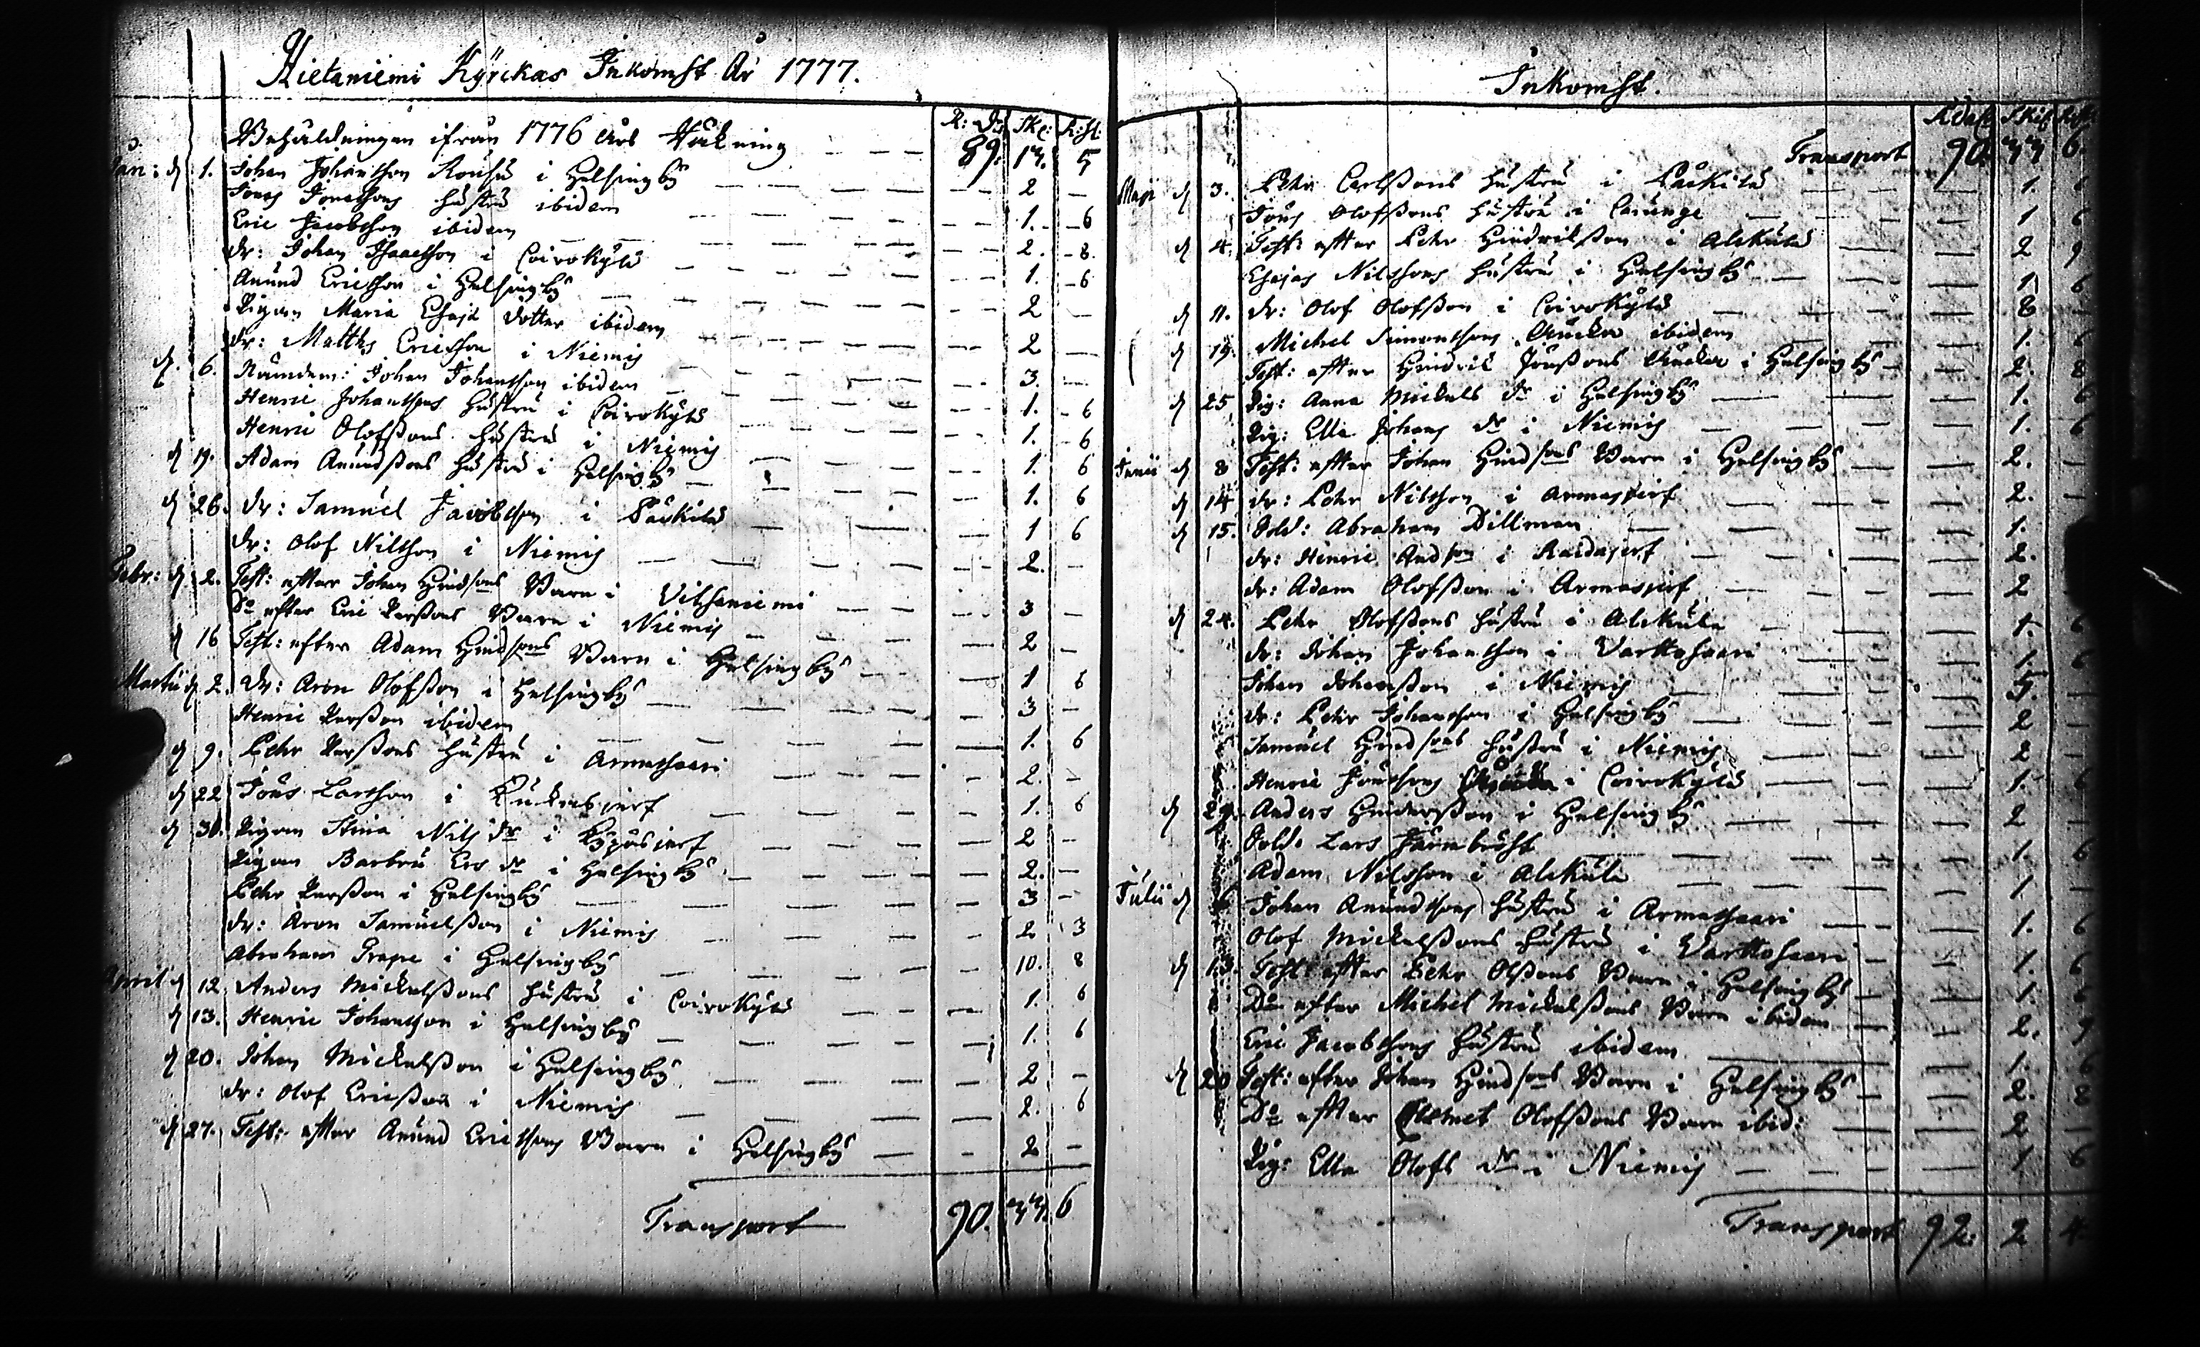 Hietaniemi Kyrckas Inkomst År 1777.
R: Dr Skl: R:st
Behåldningen ifrån 1776 Års Räkning — — 89. 17. 5
Jan: d 1. Johan Johansson Rousu i Helsingby — — 2 —
Jöns Jonassons hustru ibidem — — 1. 6
Eric Jacobsson ibidem — — 2. 8.
Dr: Johan Isaacsson i Coirokylä — — 1. 6
Anund Ericsson i Helsingby — — 2 —
Pigan Maria Esajæ dotter ibidem — — 2 —
Dr: Matths Ericsson i Niemis — — 3. —
d. 6. Nämdem: Johan Johansson ibidem — — 1. 6
Henric Johanssons hustru i Coirokylä — — 1. 6
Henric Olofssons hustru i Niemis — — 1. 6
d 19. Adam Anundssons hustru i Helsingby — — 1. 6
d 26. Dr: Samuel Jacobsson i Päckilä — — 1 6
Dr: Olof Nilsson i Niemis — — 2. —
Febr: d 2. Test: efter Johan Hindsons Barn i Vitsaniemi — — 3 —
Do efter Eric Perssons Barn i Niemis — — 2 —
d 16 Test: efter Adam Hindsons Barn i Helsingby — — 1 6
Martii d 2. Dr: Aron Olofsson i Helsingby — — 3 —
Henric Persson ibidem — — 1. 6
d 9. Pehr Perssons hustru i Armassaari — — 2. —
d 22 Jöns Larsson i — — 1. 6
d 30. Pigan Stina Nils dr i — — 2 —
Pigan Barbru Ers dr i Helsingby — — 2. —
Pehr Persson i Helsingby — — 3 —
Dr: Aron Samuelsson i Niemis — — 2 3
Abraham Grape i Helsingby — — 10. 8
April d 12 Anders Mickelssons hustru i Coirokylä — — 1. 6
d 13. Henric Johansson i Helsingby — — 1. 6
d 20. Johan Mickelsson i Helsingby — — 2 —
Dr: Olof Ericsson i Niemis — — 2. 6
d 27. Test: efter Anund Ericssons Barn i Helsingby — — 2 —
Transport 90. 33. 6
Inkomst.
Rdal Skil
Transport 90. 33 6.
Maji d 3. Pehr Carlssons hustru i Päckilä — — 1. 6
Jöns Olofssons hustru i Carunge — — 1 6
d 4. Test: efter Pehr Hindricsson i Alckula — — 2 9
Esajas Nilssons hustru i Helsingby — — 1. 6
d 11. Dr: Olof Olofsson i Coirokylä — — 8 —
d 19. Michel Simonssons Encka ibidem — — 1. 6
Test: efter Hindric Jönssons Encka i Helsingby — — 2. 8
d 25 Pig: Anna Mickels dr i Helsingby — — 1. 6
Pig: Ella Johans dr i Niemis — — 1. 6
Junii d 8 Test: efter Johan Hindsons Barn i Helsingby — — 2. —
d 14 Dr: Pehr Nilsson i Armasjerf — — 2. —
d 15. Sold: Abraham Dillman — — 1.
Dr: Henric Andson i Raidajerf — — 2.
Dr: Adam Olofsson i Armasjerf — — 2
d 24. Pehr Olofssons hustru i Alckula — — 1. 6
Dr: Johan Johansson i Varttosaari — — 1. 6
Johan Johansson i Niemis — — 5. —
Dr: Pehr Johansson i Helsingby — — 2 —
Samuel Hindsons hustru i Niemis — — 2 —
Henric Jönssons i Coirokylä — — 1. 6
d 29. Anders Hindersson i Helsingby — — 2 —
Sold. Lars Järnbröst — — 1. 6
Adam Nilsson i Alckula — — 1. —
Julii d 6 Johan Anundssons hustru i Armassaari — — 1. 6
Olof Mickelssons hustru i Varttosaari — — 1. 6
d 13. Test: efter Pehr Olssons Barn i Helsingby — — 1. 6
Do efter Michel Mickelssons Barn ibidem — — 2. 9
Eric Jacobssons hustru ibidem — — 1. 6
d 20 Test: efter Johan Hindsons Barn i Helsingby — — 2. 8
Do efter Clemet Olofssons Barn ibid: — — 2 —
Pig: Ella Olofs dr i Niemis — — 1 6
Transport 92. 2 4.